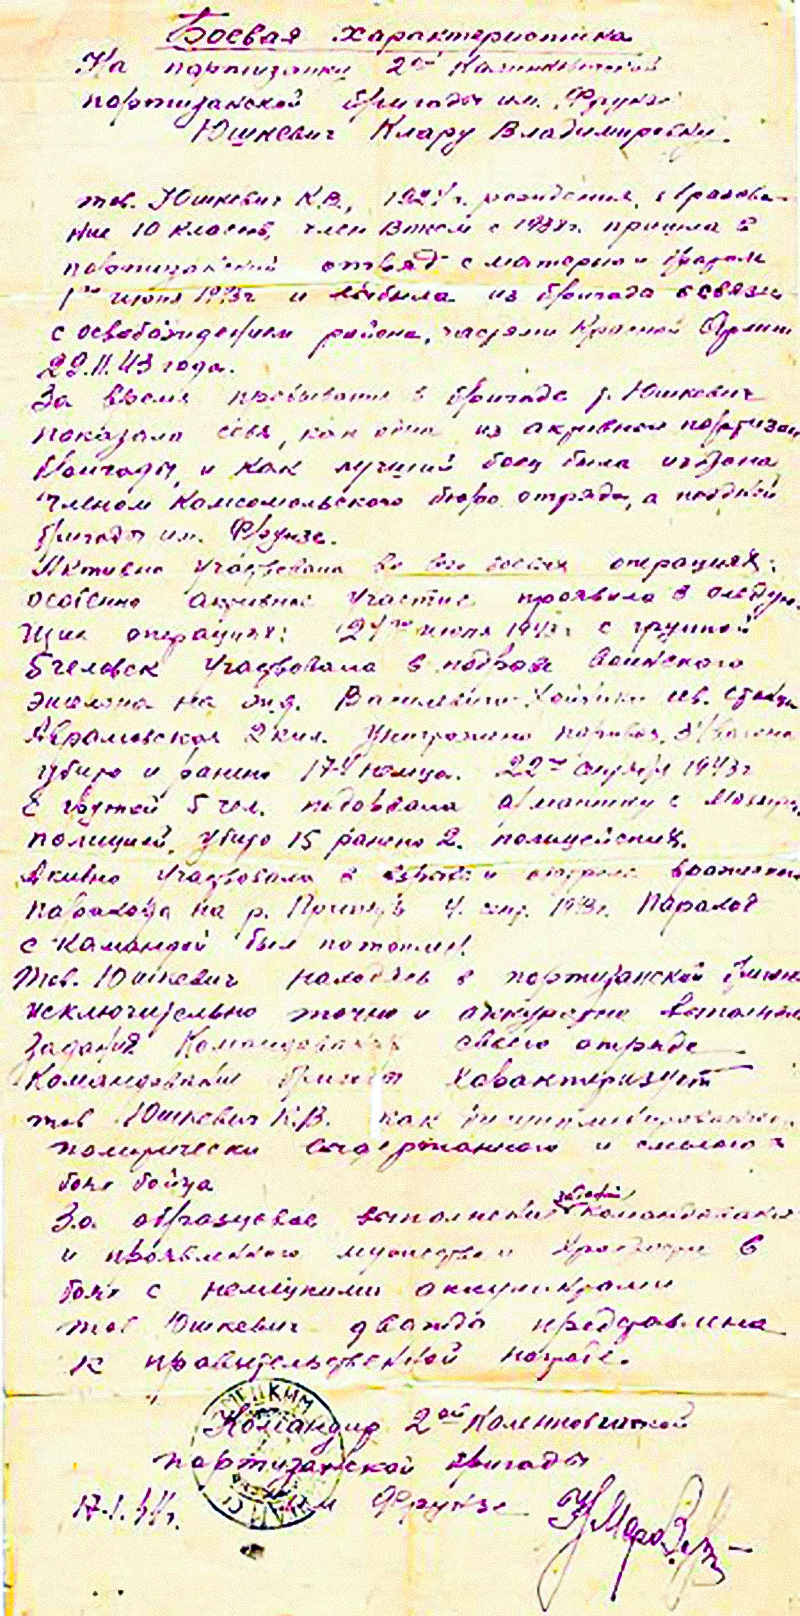 Боевая характеристика
На партизанку 2ой Калинковичской
партизанской бригады им. Фрунзе
Юшкевич Клару Владимировну.
тов. Юшкевич К.В., рождения, образова-
ние 10 классов, член ВЛКСМ с 1938г. пришла в
партизанский отряд с матерью и братом
1го июня 1943г и выбыла из бригады в связи
с освобождением района, частями Красной Армии
29.11.43 года.
За время пребывания в бригаде т. Юшкевич
показала себя, как одна из активной партизан
бригады, и как лучший боец была избрана
членом комсомольского бюро отряда, а позднее
бригады им. Фрунзе.
Активно участвовала во всех боевых операциях,
особенно активное участие проявила в следую-
щих операциях: июля 1943г с группой
5 человек участвовала в подрыве воинского
эшелона на жд. Василевичи-Хойники
Аврамовская 2 км. Уничтожено паровоз,
убито и ранено 174 немца. 22го 1943г
с группой 5 чел. подорвала автомашину с
полицией, убито 15 ранено 2. полицейских.
Активно участвовала в
парохода на р. Припять 4. сент. 1943г. Пароход
с командой был потоплен.
Тов. Юшкевич находясь в партизанской
исключительно точно и аккуратно выполняла
задания командования своего отряда
Командование бригады характеризует
тов Юшкевич К.В. как дисциплинированного
политически выдержанного и смелого в
бою бойца
За образцовое выполнение заданий командования
и проявленного мужества и храбрости в
бою с немецкими оккупантами
тов Юшкевич дважды представлена
к правительственной награде.
Командир 2ой Калинковичской
партизанской бригады
17.1.44г. им Фрунзе